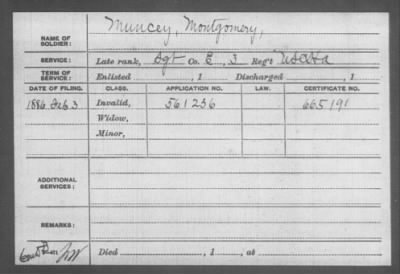 NAME OF SOLDIER: Muncey, Montgomery,
SERVICE: Late rank, Sgt Co. E, 3 Reg't US C Ha
TERM OF SERVICE: Enlisted , 1 Discharged , 1
DATE OF FILING. CLASS. APPLICATION NO. LAW. CERTIFICATE NO.
1886 Feb 3 Invalid, 561236 665191
Widow,
Minor,
ADDITIONAL SERVICES:
REMARKS:
Died , 1 , at